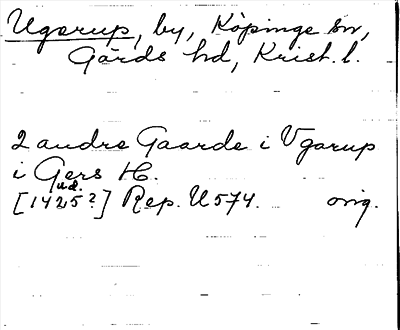 Ugarup, by, Köpinge sn,
Gärds hd, Krist. l.
2 andre Gaarde i Vgarup
i Gers H.
u.d.
[1425?] Rep. U 574. orig.